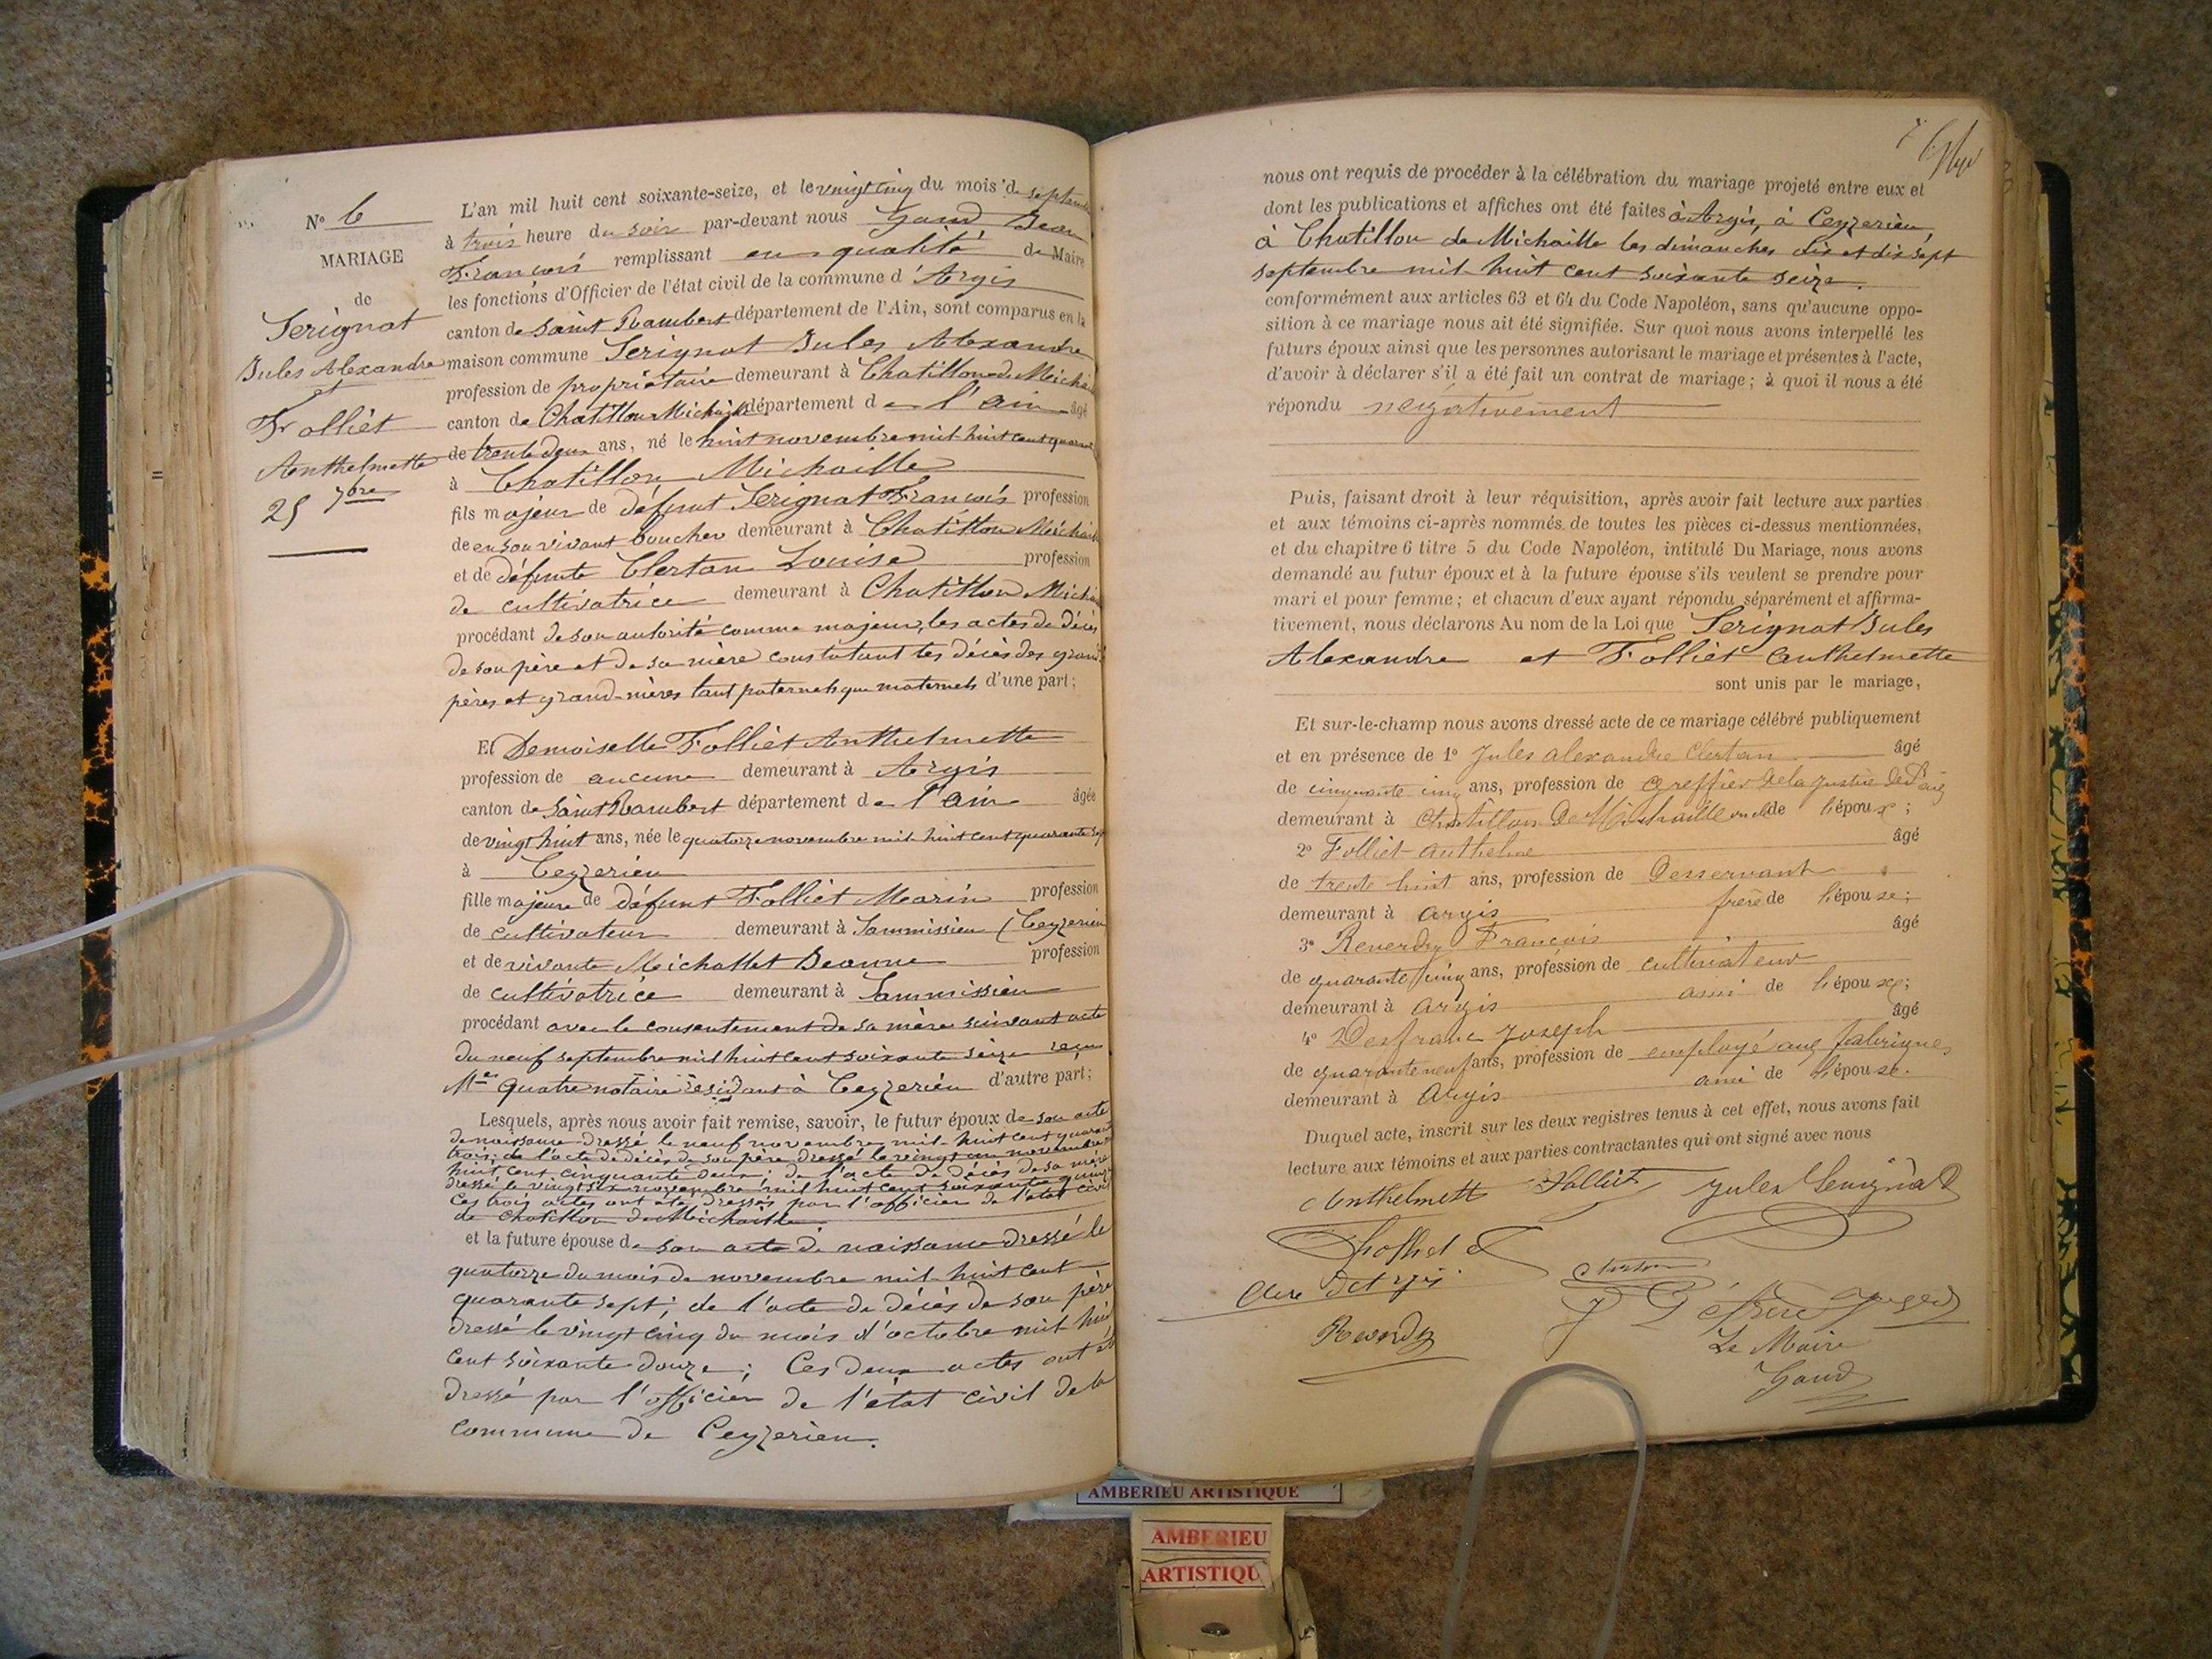 N° 6
MARIAGE
de
Serignat
Jules Alexandre
et
Folliet
Anthelmette
25 7bre
L'an mil huit cent soixante-seize, et le vingt cinq du mois de septembre
à trois heure du soir par-devant nous Gaud Jean
François remplissant en qualité de Maire
les fonctions d'Officier de l'état civil de la commune d'Argis
canton de Saint Rambert département de l'Ain, sont comparus en la
maison commune Serignat Jules Alexandre
profession de propriétaire demeurant à Chatillon de Michai
canton de Chatillon Michaille département de l'ain âgé
de trente deux ans, né le huit novembre mil-huit cent quarant
à Chatillon Michaille
fils majeur de défunt Serignat François profession
de en son vivant boucher demeurant à Chatillon Michail
et de défunte Clertan Louise profession
de cultivatrice demeurant à Chatillon Michai
procédant de son autorité comme majeur, les actes de décès
de son père et de sa mère constatant les décès des grand
pères et grand-mères tant paternels que maternels d'une part;
Et Demoiselle Folliet Anthelmette
profession de aucune demeurant à Argis
canton de Saint Rambert département de l'ain âgée
de vingt huit ans, née le quatorze novembre mil-huit cent quarante sep
à Ceyzerieu
fille majeure de défunt Folliet Marin profession
de cultivateur demeurant à Sammissieu (Ceyzerieu
et de vivante Michallet Jeanne profession
de cultivatrice demeurant à Sammissieu
procédant avec le consentement de sa mère suivant acte
du neuf septembre mil huit cent soixante seize reçu
Me Quatre notaire résidant à Ceyzerieu d'autre part;
Lesquels, après nous avoir fait remise, savoir, le futur époux de son acte
de naissance dressé le neuf novembre mil-huit cent quarant
trois; de l'acte de décès de son père dressé le vingt un novembre
huit cent cinquante deux; de l'acte de décès de sa mère
dressé le vingt six novembre mil huit cent soixante quinze
Ces trois actes ont été dressés par l'officier de l'état civil
de Chatillon de Michaille
et la future épouse de son acte de naissance dressé le
quatorze du mois de novembre mil-huit cent
quarante sept; de l'acte de décès de son père
dressé le vingt cinq du mois d'octobre mil hui
cent soixante douze; Ces deux actes ont ét
dressé par l'officier de l'état civil de la
commune de Ceyzerieu.
nous ont requis de procéder à la célébration du mariage projeté entre eux et
dont les publications et affiches ont été faites à Argis, à Ceyzerieu,
à Chatillon de Michaille les dimanches dix et dix sept
septembre mil-huit cent soixante seize.
conformément aux articles 63 et 64 du Code Napoléon, sans qu'aucune oppo-
sition à ce mariage nous ait été signifiée. Sur quoi nous avons interpellé les
futurs époux ainsi que les personnes autorisant le mariage et présentes à l'acte,
d'avoir à déclarer s'il a été fait un contrat de mariage; à quoi il nous a été
répondu négativement
Puis, faisant droit à leur réquisition, après avoir fait lecture aux parties
et aux témoins ci-après nommés de toutes les pièces ci-dessus mentionnées,
et du chapitre 6 titre 5 du Code Napoléon, intitulé Du Mariage, nous avons
demandé au futur époux et à la future épouse s'ils veulent se prendre pour
mari et pour femme; et chacun d'eux ayant répondu séparément et affirma-
tivement, nous déclarons Au nom de la Loi que Serignat Jules
Alexandre et Folliet Anthelmette
sont unis par le mariage,
Et sur-le-champ nous avons dressé acte de ce mariage célébré publiquement
et en présence de 1° Jules Alexandre Clertan âgé
de cinquante cinq ans, profession de Greffier de la Justice de Paix
demeurant à Chatillon de Michaille oncle de l'époux;
2° Folliet Anthelme âgé
de trente huit ans, profession de Desservant
demeurant à Argis frère de l'épouse;
3° Reverdy François âgé
de quarante cinq ans, profession de cultivateur
demeurant à Argis ami de l'époux;
4° Desfranc Joseph âgé
de quarante neuf ans, profession de employé aux fabriques
demeurant à Argis ami de l'épouse.
Duquel acte, inscrit sur les deux registres tenus à cet effet, nous avons fait
lecture aux témoins et aux parties contractantes qui ont signé avec nous
Anthelmette Folliet Jules Serignat
Folliet
Curé d'Argis
Clertan
Reverdy
Le Maire
Gaud
AMBERIEU ARTISTIQUE
AMBERIEU
ARTISTIQU